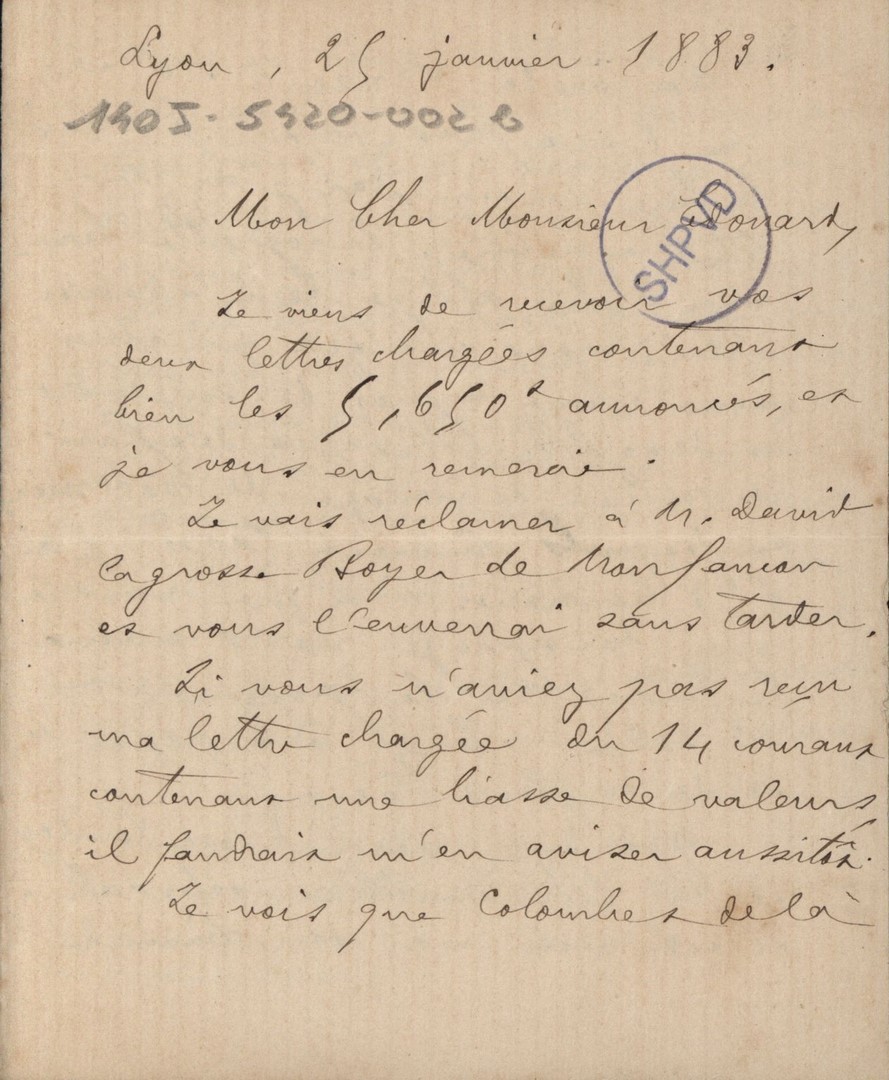 Lyon, 25 janvier 1883.
140J-5420-002 b
Mon Cher Monsieur Édouard,
SHPVD
Je viens de recevoir vos
deux lettres chargées contenant
bien les 5,650f annoncés, et
je vous en remercie.
Je vais réclamer à M. David
la grosse Boyer de Monfaucon
et vous l'enverrai sans tarder.
Si vous n'aviez pas reçu
ma lettre chargée du 14 courant
contenant une liasse de valeurs
il faudrait m'en aviser aussitôt.
Je vois que Colombet de là